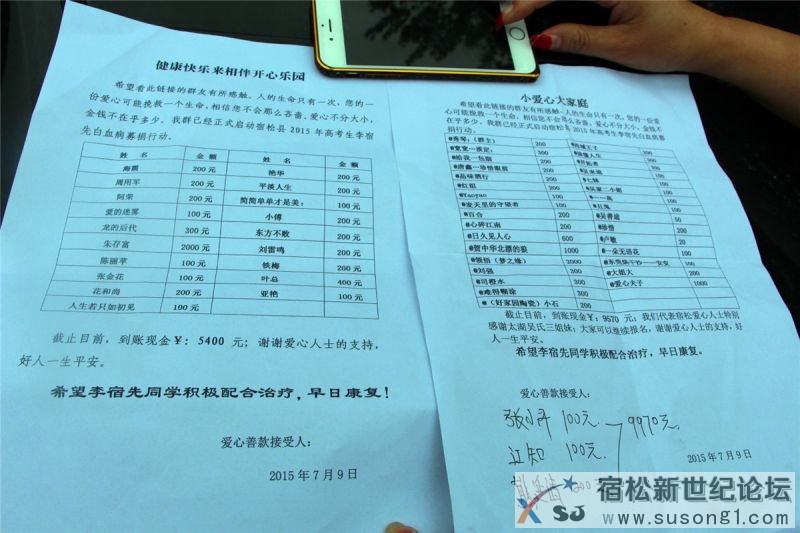 健康快乐来相伴开心乐园
希望看此链接的群友有所感触,人的生命只有一次,您的一
份爱心可能挽救一个生命,相信您不会那么吝啬,爱心不分大小,
金钱不在乎多少。我群已经正式启动宿松县2015年高考生李宿
先白血病募捐行动。
姓 名 金额 姓 名 金额
海颖 200元 艳华 200元
周用军 200元 平淡人生 200元
阿荣 200元 简简单单才是美: 100元
爱的迷雾 100元 小傅 200元
龙的后代 300元 东方不败 200元
朱存富 2000元 刘雷鸣 200元
陈丽苹 100元 铁梅 200元
张金花 100元 叶总 400元
花和尚 200元 亚艳 100元
人生若只如初见 100元
截止目前,到账现金¥:5400元;谢谢爱心人士的支持,
好人一生平安。
希望李宿先同学积极配合治疗,早日康复!
爱心善款接受人:
2015年7月9日
小爱心大家庭
希望看此链接的群友有所感触,人的生命只有一次,您的一份爱心
可能挽救一个生命,相信您不会那么吝啬,爱心不分大小,金钱不
在乎多少。我群已经正式启动宿松县2015年高考生李宿先白血病募
捐行动。
@秀琴:(群主) 200
200
@给我一包烟 200
200
@品味酒行 200 @七妹
@红姐 200 @吴家二小姐
@Yaoyao 100
@凌天里的守望者 100
@百合 200 50
@心碎江南 200 @珍惜 200
@日久见人心 600 @卢敏 20
@贺中华北漂的狼 1000 @一朵无语花 100
(梦之缘) 3000
@刘强 300 @大姐大 200
@司橙水 300 @爱心夫子 1000
@难得糊涂 300
@(好家园陶瓷)小石 200
截止目前,到账现金¥:9570元;我们代表宿松爱心人士特别
感谢太湖吴氏三姐妹;大家可以继续报名,谢谢爱心人士的支持,好
人一生平安。
希望李宿先同学积极配合治疗,早日康复。
爱心善款接受人:
100元
9970元
江知 100元
2015年7月9日
宿松新世纪论坛
SJ
www.susong1.com